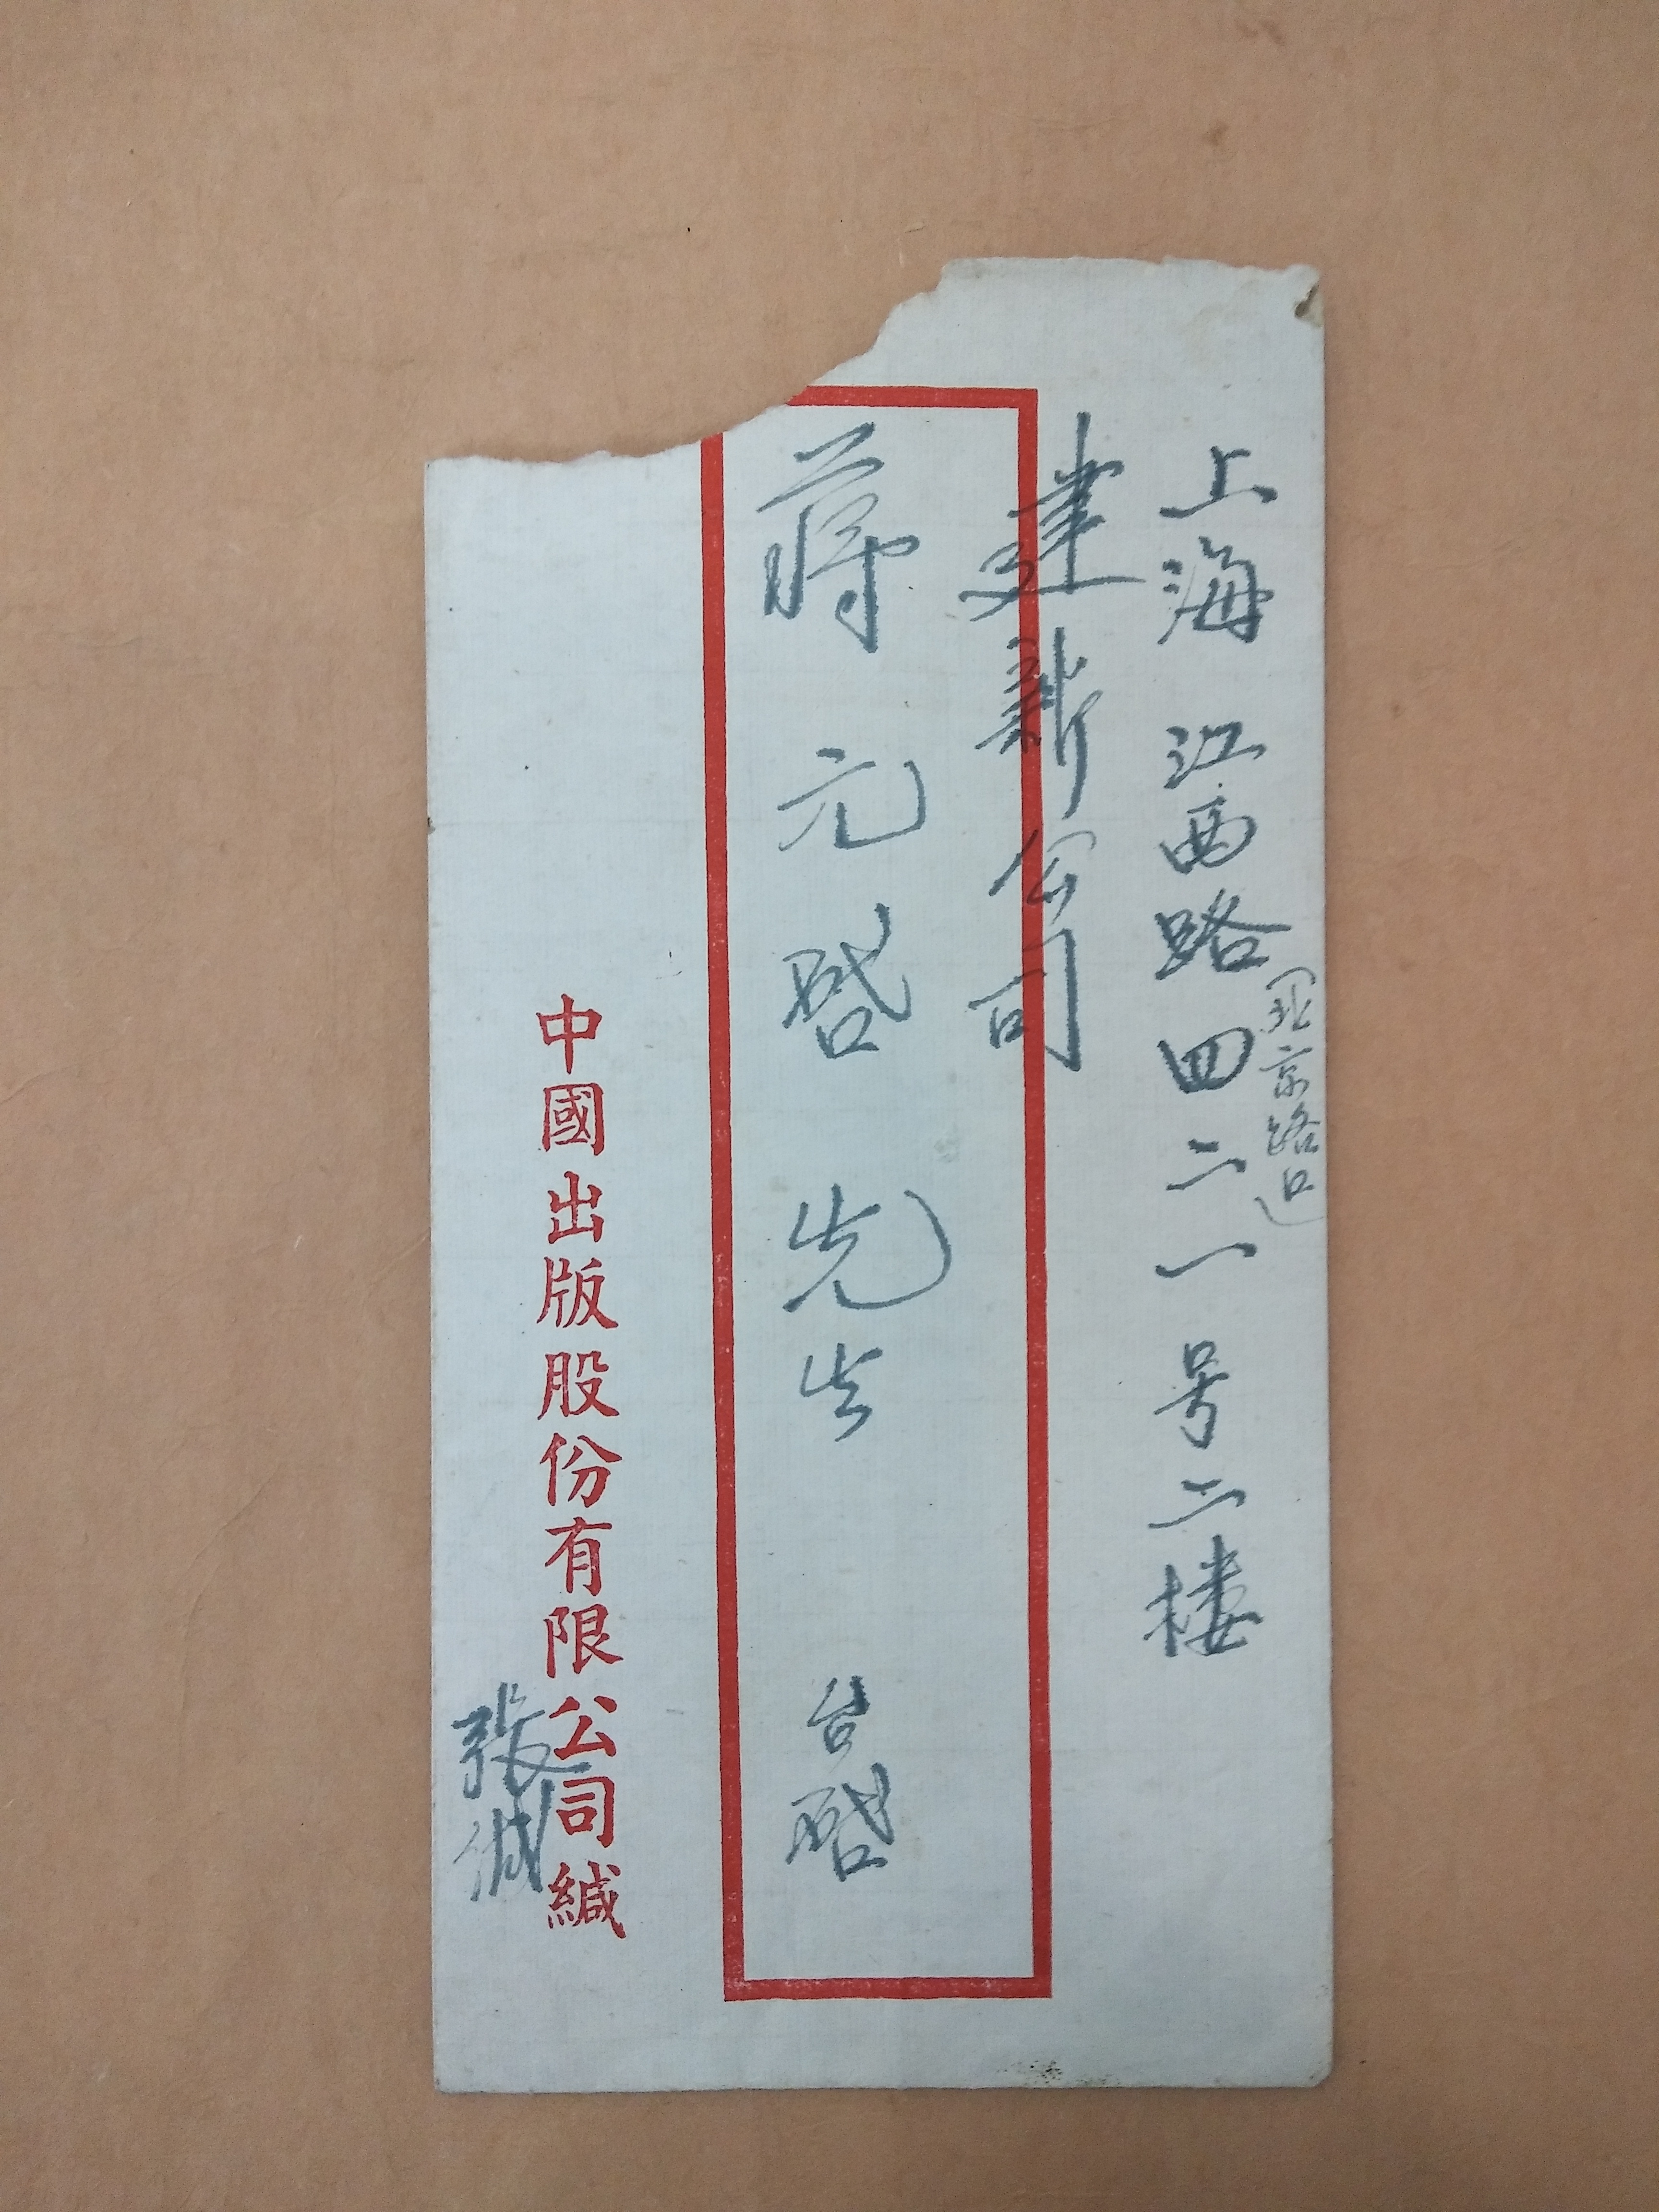 上海 江西路四二一号二楼
(北京路口)
建新公司
蒋元啓先生 台啓
中國出版股份有限公司緘
張緘